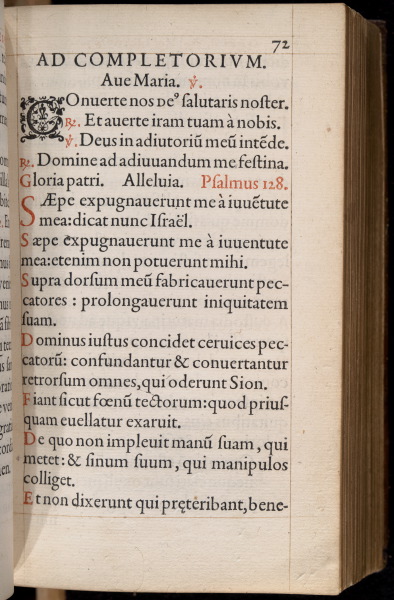 72
AD COMPLETORIVM.
Aue Maria. ℣.
COnuerte nos DEꝰ ſalutaris noſter.
℟. Et auerte iram tuam à nobis.
℣. Deus in adiutoriũ meũ intẽde.
℟. Domine ad adiuuandum me feſtina.
Gloria patri. Alleluia. Pſalmus 128.
SÆpe expugnauerunt me à iuuẽtute
mea: dicat nunc Iſraël.
Sæpe expugnauerunt me à iuuentute
mea: etenim non potuerunt mihi.
Supra dorſum meũ fabricauerunt pec-
catores: prolongauerunt iniquitatem
ſuam.
Dominus iuſtus concidet ceruices pec-
catorũ: confundantur & conuertantur
retrorſum omnes, qui oderunt Sion.
Fiant ſicut fœnũ tectorum: quod priuſ-
quam euellatur exaruit.
De quo non impleuit manũ ſuam, qui
metet: & ſinum ſuum, qui manipulos
colliget.
Et non dixerunt qui pręteribant, bene-